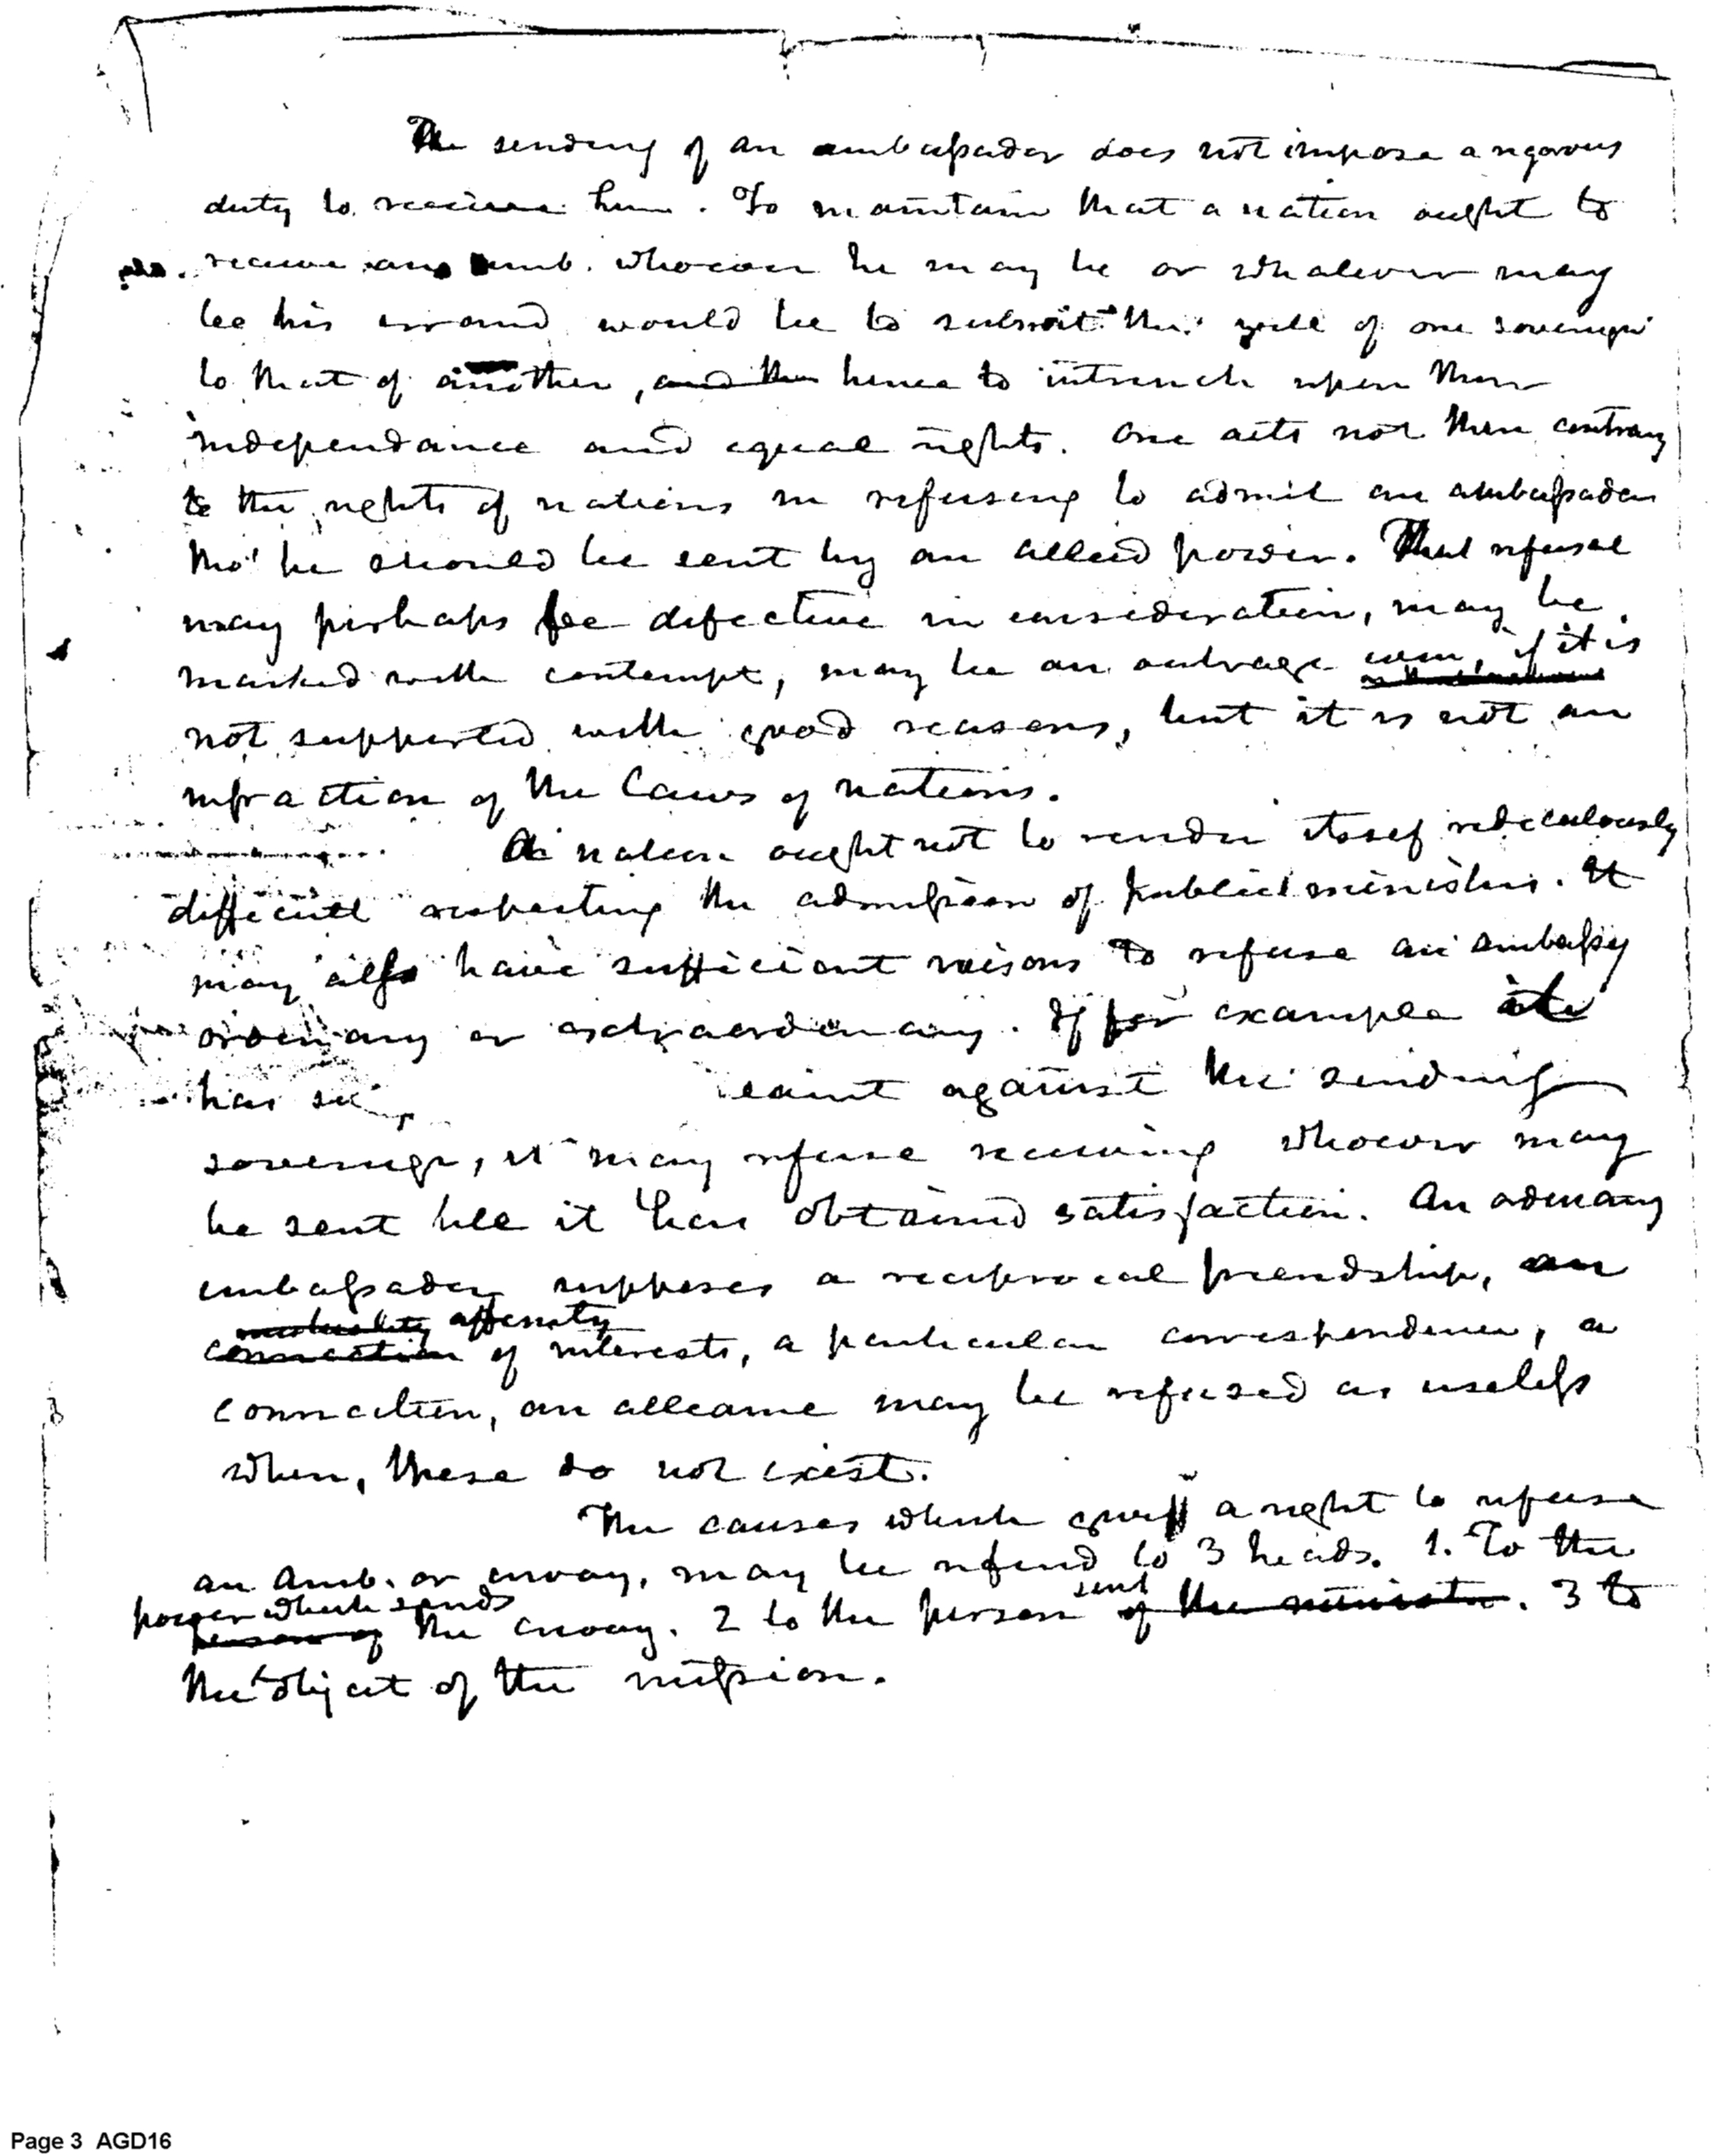 The sending of an ambassador does not impose a rigorous
duty to receive him. To maintain that a nation ought to
receive any amb. whoever he may be or whatever may
be his errand would be to submit the will of one sovereign
to that of another, and then hence to intrench upon their
independance and equal rights. One acts not then contrary
to the rights of nations in refusing to admit an ambassador
tho' he should be sent by an allied power. That refusal
may perhaps be defective in consideration, may be
marked with contempt, may be an outrage even, if it is
not supported with good reasons, but it is not an
infraction of the laws of nations.
A nation ought not to render itself rediculously
difficult respecting the admission of public ministers. It
may also have sufficient reasons to refuse an embassy
ordinary or extraordinary. If for example it
has
against the sending
sovereign, it may refuse receiving whoever may
be sent till it has obtained satisfaction. An ordinary
embassador supposes a reciprocal friendship, an
mutuality affinity
connection of interests, a particular correspondence, a
connection, an alliance may be refused as useless
when, these do not exist.
The causes which give a right to refuse
an Amb. or envoy, may be referred to 3 heads. 1. To the
power which sends
person of the envoy. 2 to the person sent of the minister. 3 to
the object of the mission.
Page 3 AGD16